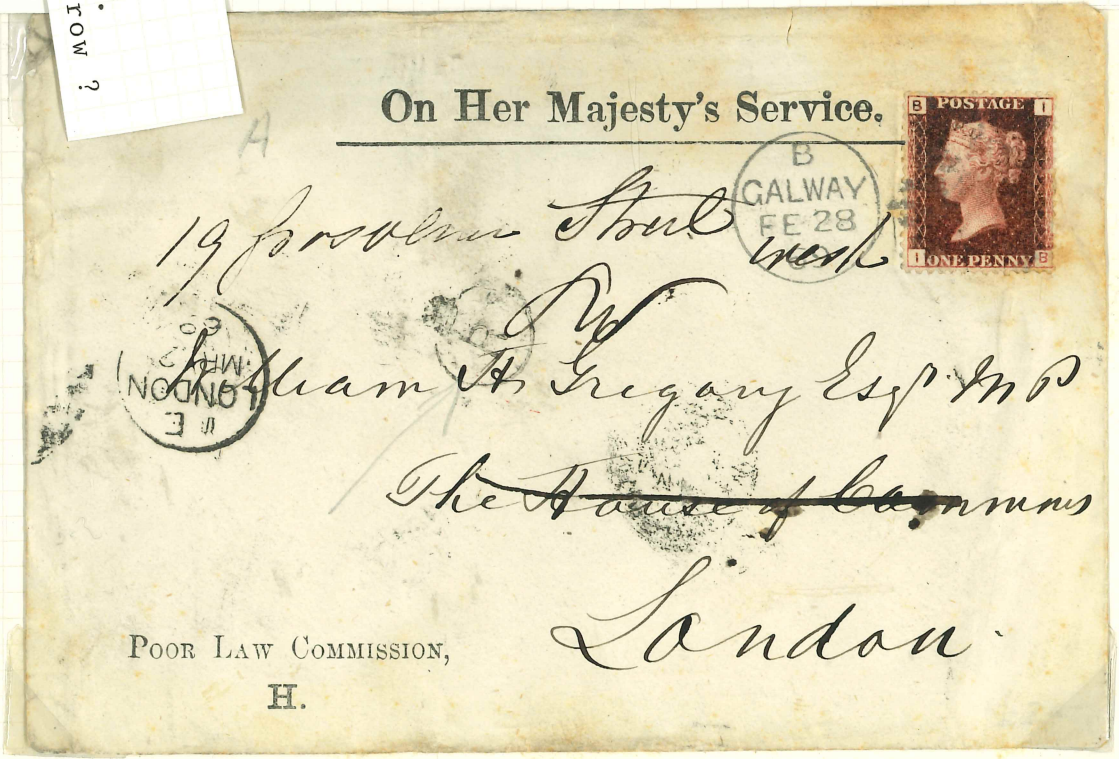 row ?
On Her Majesty's Service.
B I
POSTAGE
ONE PENNY
I B
B
GALWAY
FE 28
A
19 Grosvenor Street
West
William H Gregory Esqr M P
The House of Commons
London
LONDON
E
MR 2
60
Poor Law Commission,
H.